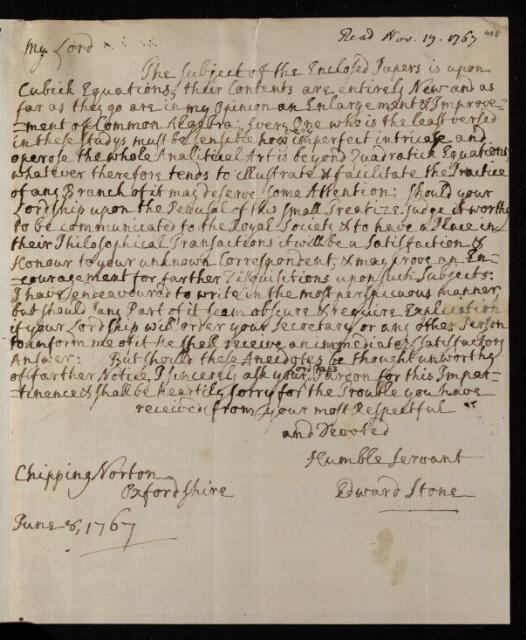 Read Nov. 19. 1767
My Lord
The Subject of the Enclosed Papers is upon
Cubick Equations, their Contents are entirely New and as
far as they go are in my Opinion an Enlargement & Improve-
-ment of Common Algebra: Every One who is the least versed
in these Studys must be sensible how imperfect intricate and
operose the whole Analitical Art is beyond Quadratick Equations;
whatever therefore tends to illustrate & facilitate the Practice
of any Branch of it may deserve some Attention: Should your
Lordship upon the Perusal of this small Treatize judge it worthy
to be communicated to the Royal Society & to have a Place in
their Philosophical Transactions it will be a Satisfaction &
Honour to your unknown Correspondent, & may prove an En-
-couragement for farther Disquisitions upon such Subjects:
I have endeavoured to write in the most perspicuous manner,
but should any Part of it seem obscure & require Explication
if your Lordship will order your Secretary or any other Person
to inform me of it he shall receive an immediate & satisfactory
Answer: But should these Anecdotes be thought unworthy
of farther Notice I sincerely ask your Lordship's Pardon for this Imper-
-tinance & shall be heartily sorry for the Trouble you have
received from your most Respectful
and Devoted
Humble Servant
Chipping Norton
Oxfordshire
Edward Stone
June 8, 1767